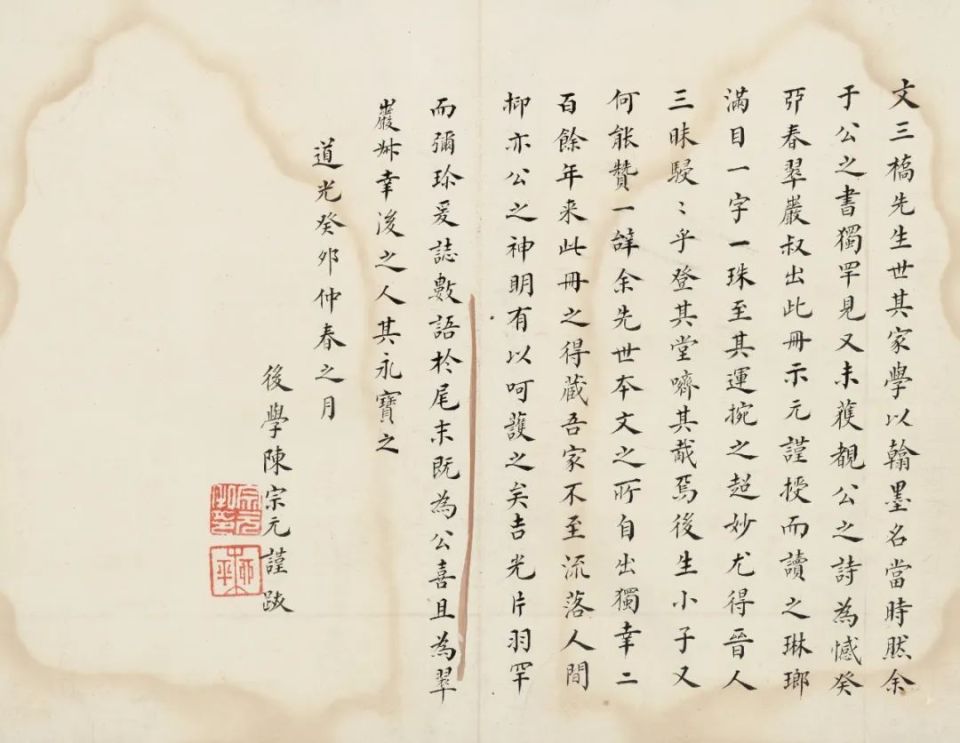 文三橋先生世其家學以翰墨名當時然余
于公之書獨罕見又未獲覩公之詩為憾癸
夘春翠巖叔出此冊示元謹授而讀之琳瑯
滿目一字一珠至其運捥之超妙尤得晉人
三昧駸〻乎登其堂嚌其胾焉後生小子又
何能贊一辭余先世本文之所自出獨幸二
百餘年来此冊之得藏吾家不至流落人間
抑亦公之神明有以呵護之矣吉光片羽罕
而彌珍爰誌數語於尾末既為公喜且為翠
巖叔幸後之人其永寶之
道光癸夘仲春之月
後學陳宗元謹跋